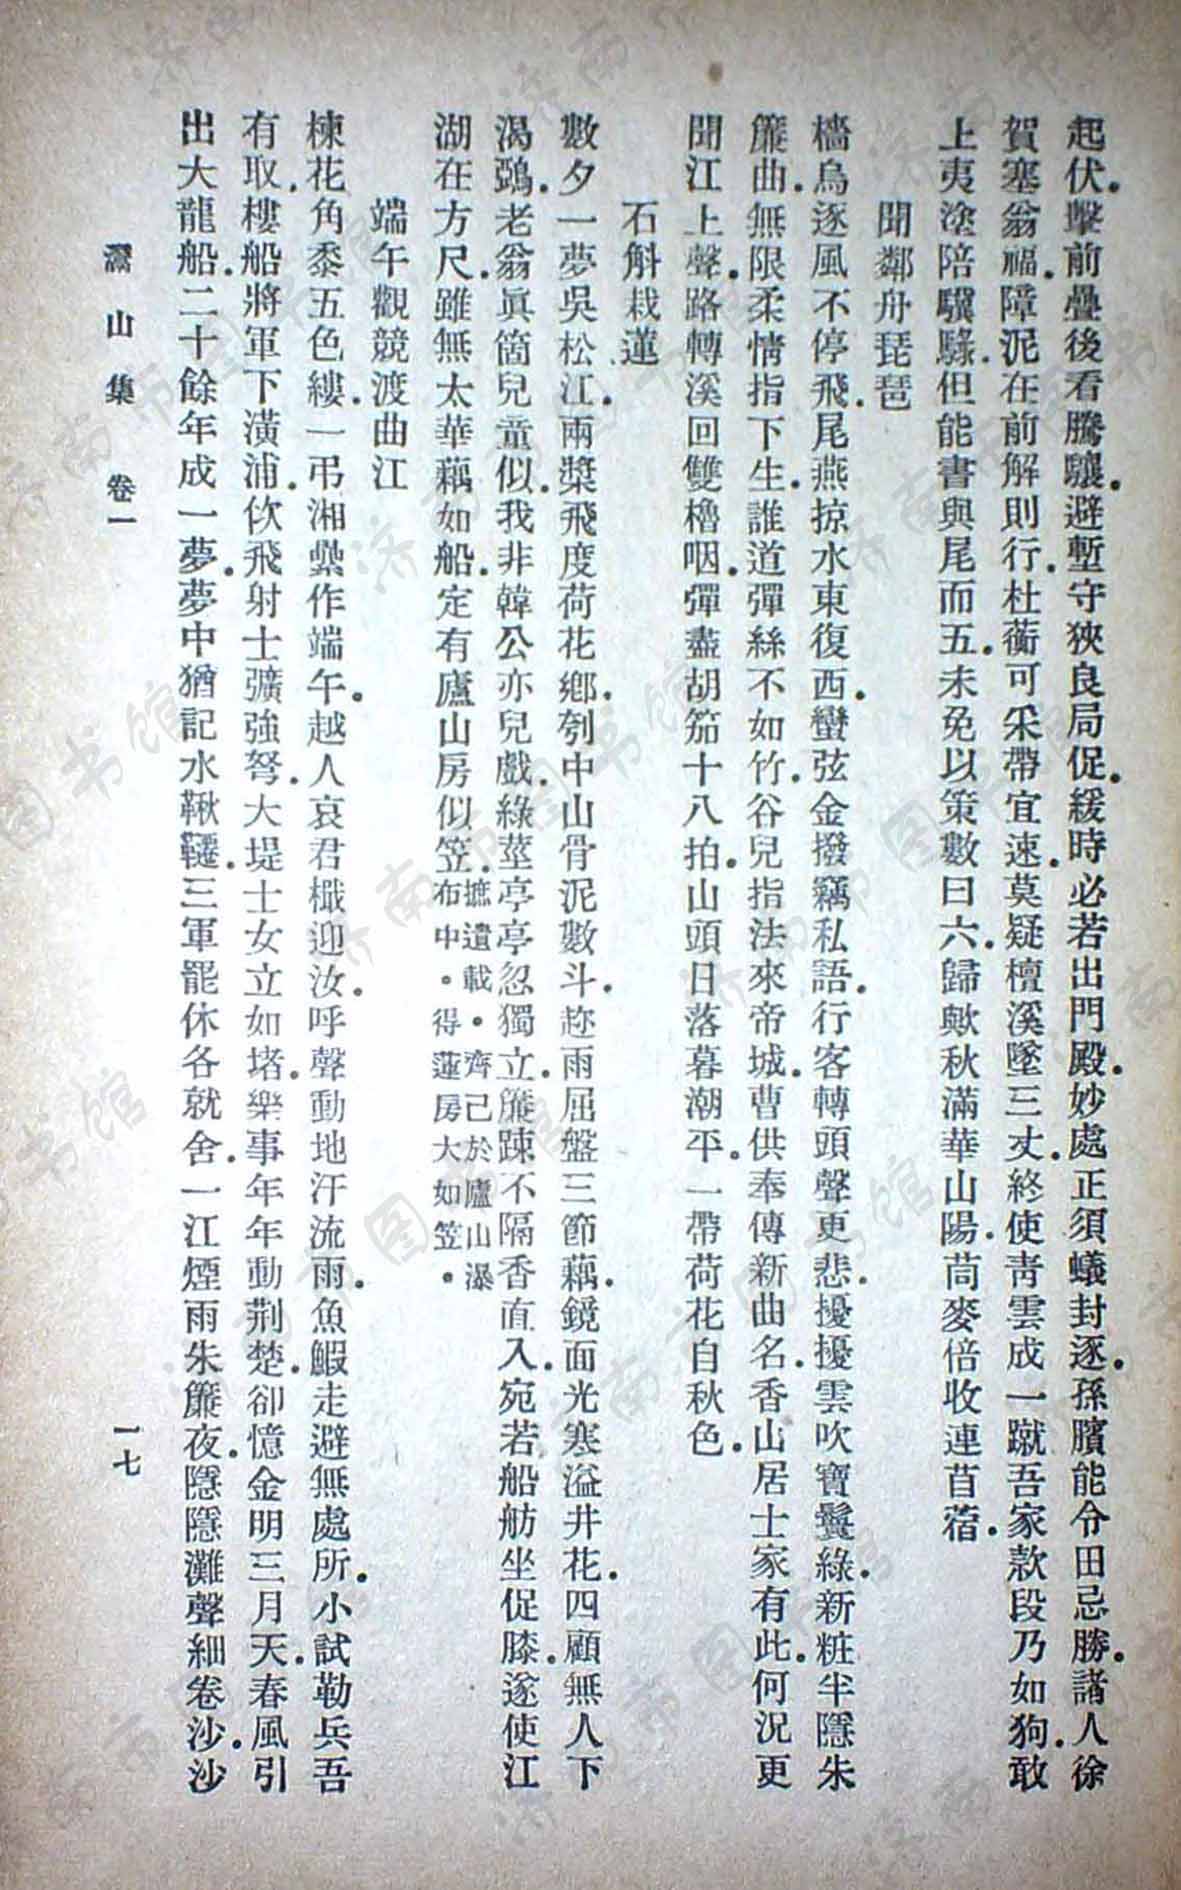 起伏。擊前疊後看騰驤。避塹守狹良局促。緩時必若出門殿。妙處正須蟻封逐。孫臏能令田忌勝。諸人徐
賀塞翁福。障泥在前解則行。杜蘅可采帶宜速。莫疑檀溪墜三丈。終使靑雲成一蹴。吾家款段乃如狗。敢
上夷塗陪驥騄。但能書與尾而五。未免以策數曰六。歸歟秋滿華山陽。茼麥倍收連苜蓿。
聞鄰舟琵琶
檣烏逐風不停飛。尾燕掠水東復西。蠻弦金撥竊私語。行客轉頭聲更悲。擾擾雲吹寶鬟綠。新粧半隱朱
簾曲。無限柔情指下生。誰道彈絲不如竹。谷兒指法來帝城。曹供奉傳新曲名。香山居士家有此。何況更
聞江上聲。路轉溪回雙櫓咽。彈盡胡笳十八拍。山頭日落暮潮平。一帶荷花自秋色。
石斛栽蓮
數夕一夢吳松江。兩槳飛度荷花鄕。刳中山骨泥數斗。趂雨屈盤三節藕。鏡面光寒溢井花。四顧無人下
渴鵶。老翁眞箇兒童似。我非韓公亦兒戲。綠莖亭亭忽獨立。簾踈不隔香直入。宛若船舫坐促膝。遂使江
湖在方尺。雖無太華藕如船。定有廬山房似笠。摭遺載。齊己於廬山瀑布中。得蓮房大如笠。
端午觀競渡曲江
楝花角黍五色縷。一弔湘纍作端午。越人哀君檝迎汝。呼聲動地汗流雨。魚鰕走避無處所。小試勒兵吾
有取。樓船將軍下潢浦。佽飛射士彍強弩。大堤士女立如堵。樂事年年動荆楚。卻憶金明三月天。春風引
出大龍船。二十餘年成一夢。夢中猶記水鞦韆。三軍罷休各就舍。一江煙雨朱簾夜。隱隱灘聲細卷沙。沙
灊山集 卷一 一七